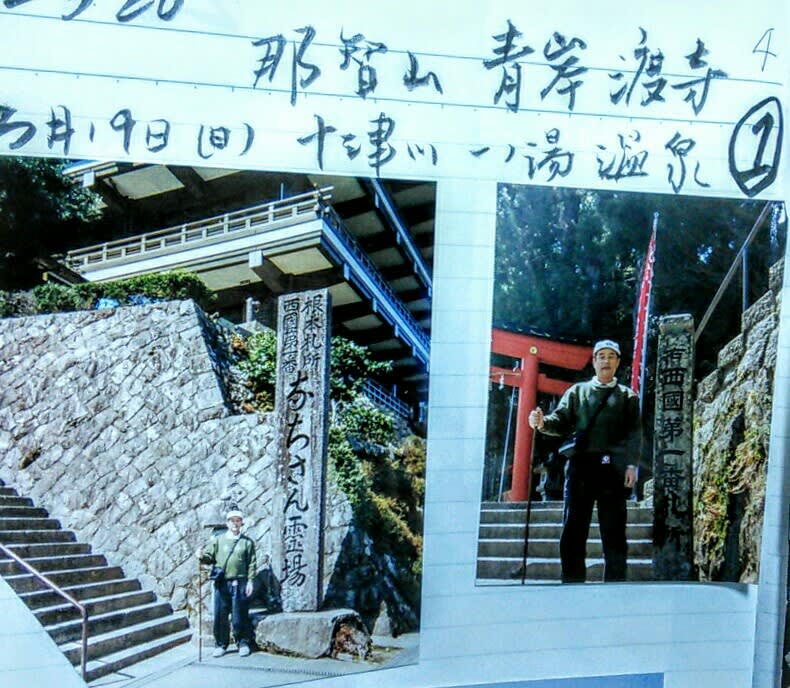 那智山 青岸渡寺
4
3月19日(日) 十津川 一湯温泉 ①
根本札所
西國第一番
なちさん霊場
西國第一番札所